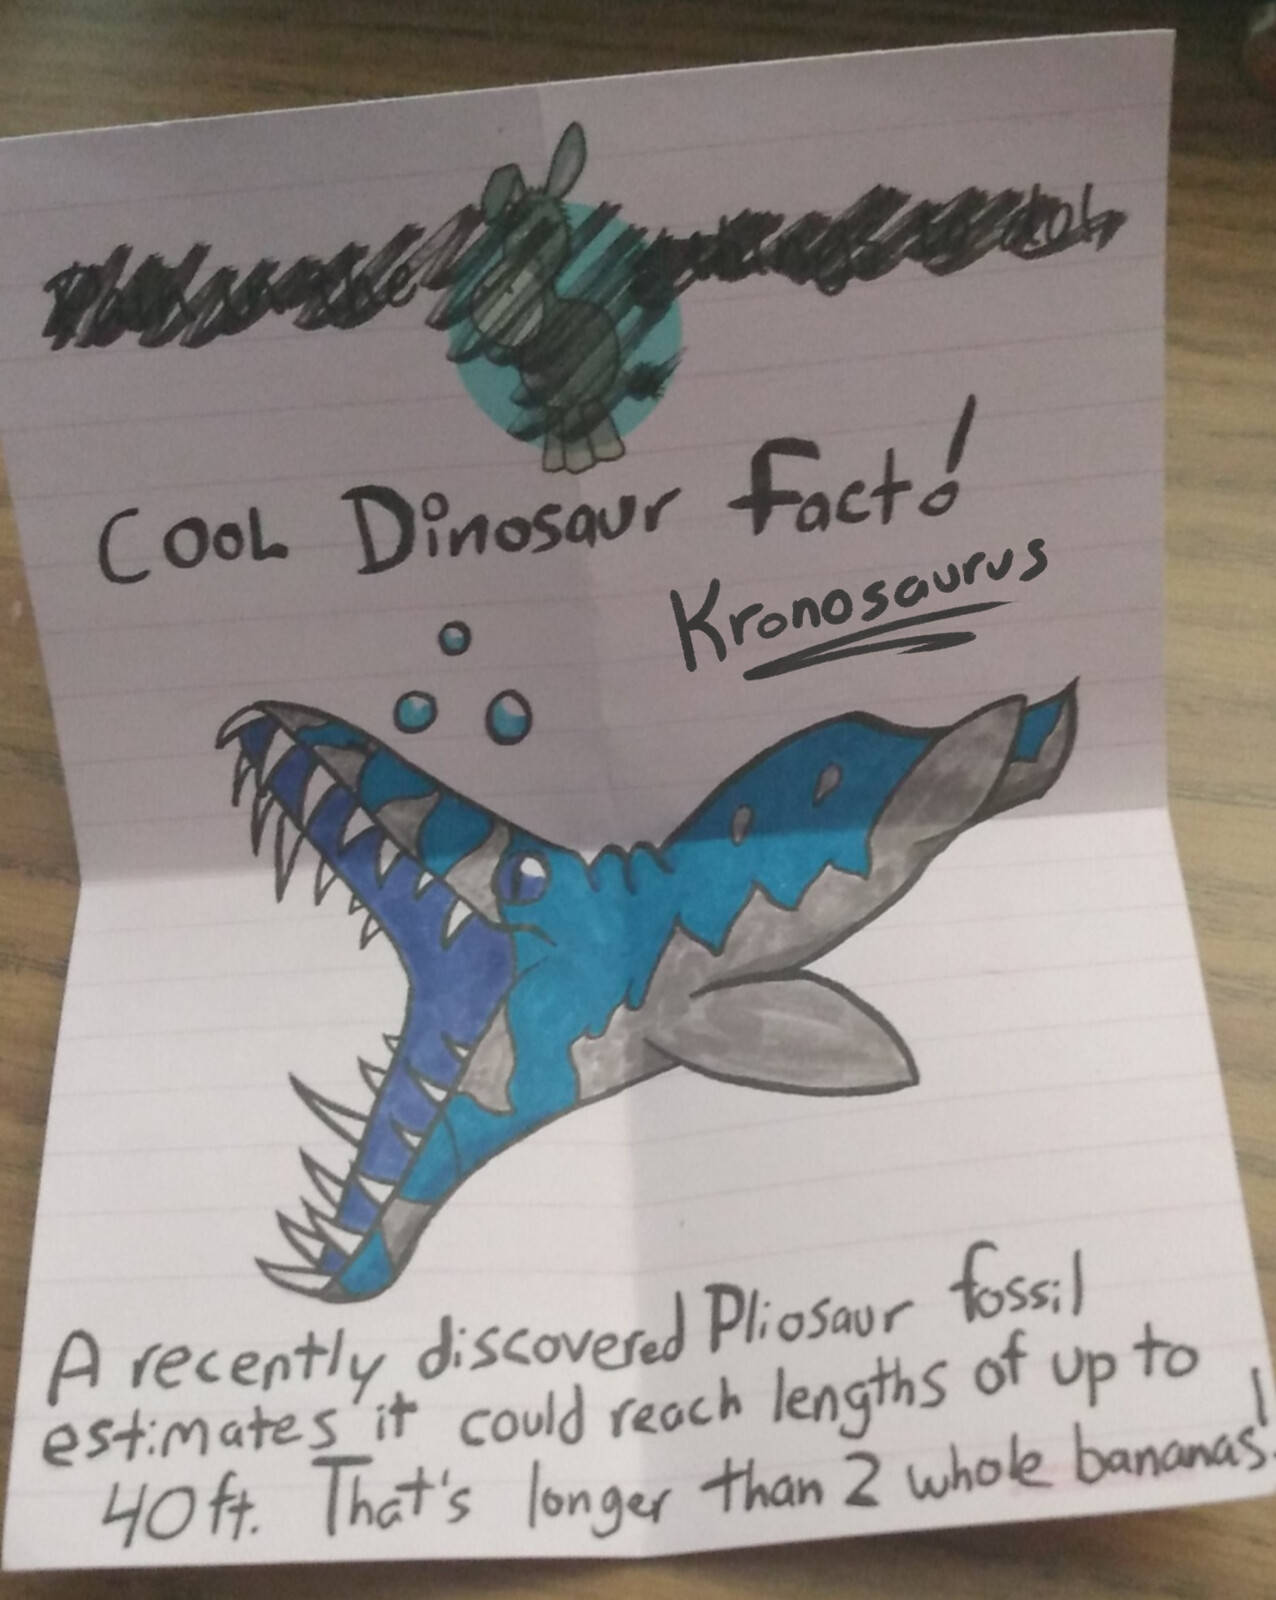 Cool Dinosaur Fact!
Kronosaurus
A recently discovered Pliosaur fossil
estimates it could reach lengths of up to
40ft. That's longer than 2 whole bananas!